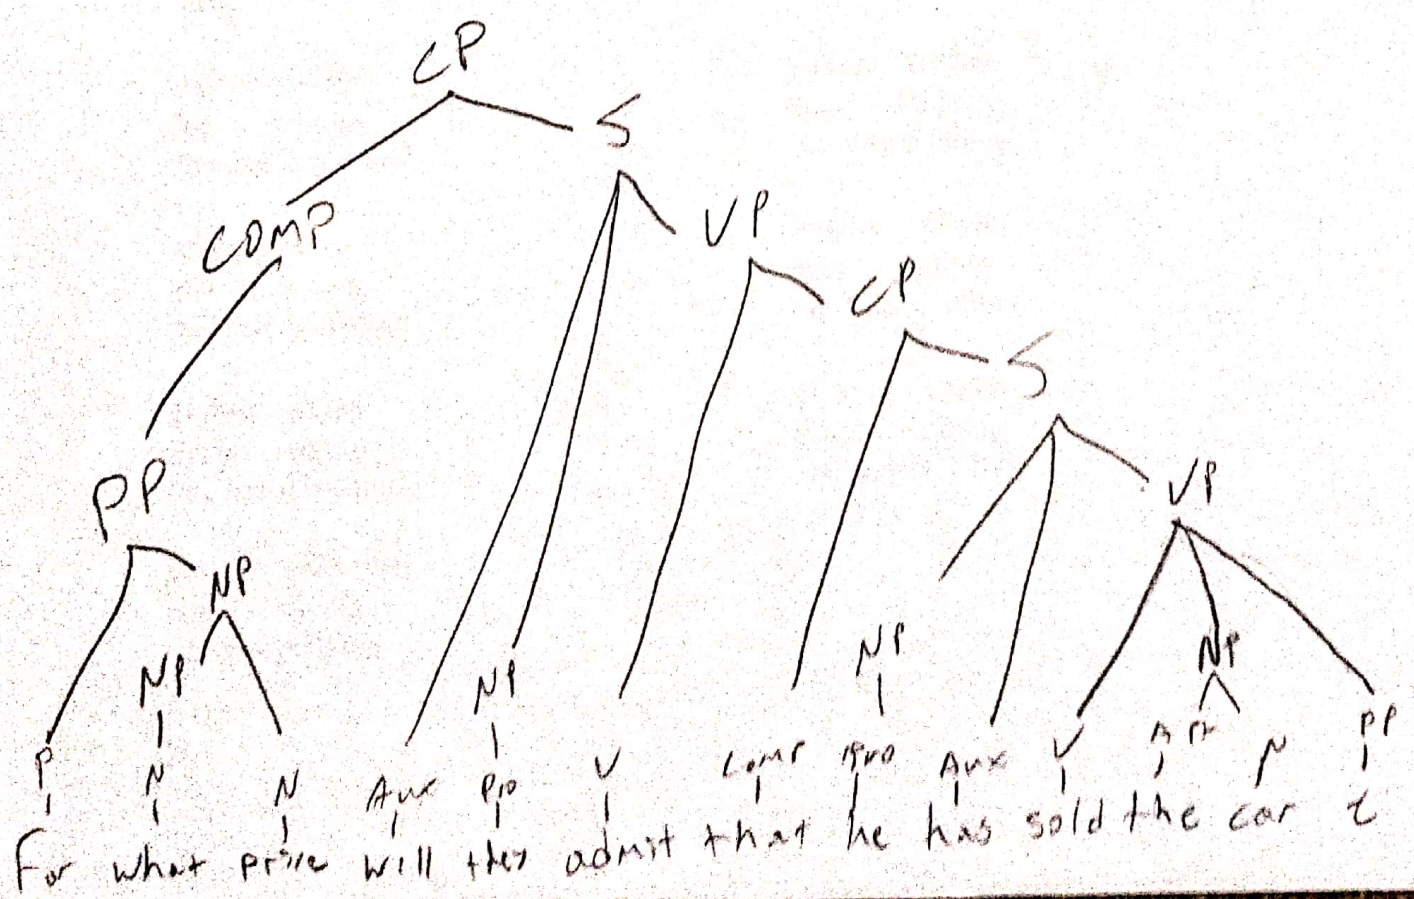 CP
S
COMP
VP
CP
S
PP
VP
NP
NP NP NP NP
P N N Aux Pro V Comp Pro Aux V Art N PP
For what price will they admit that he has sold the car t